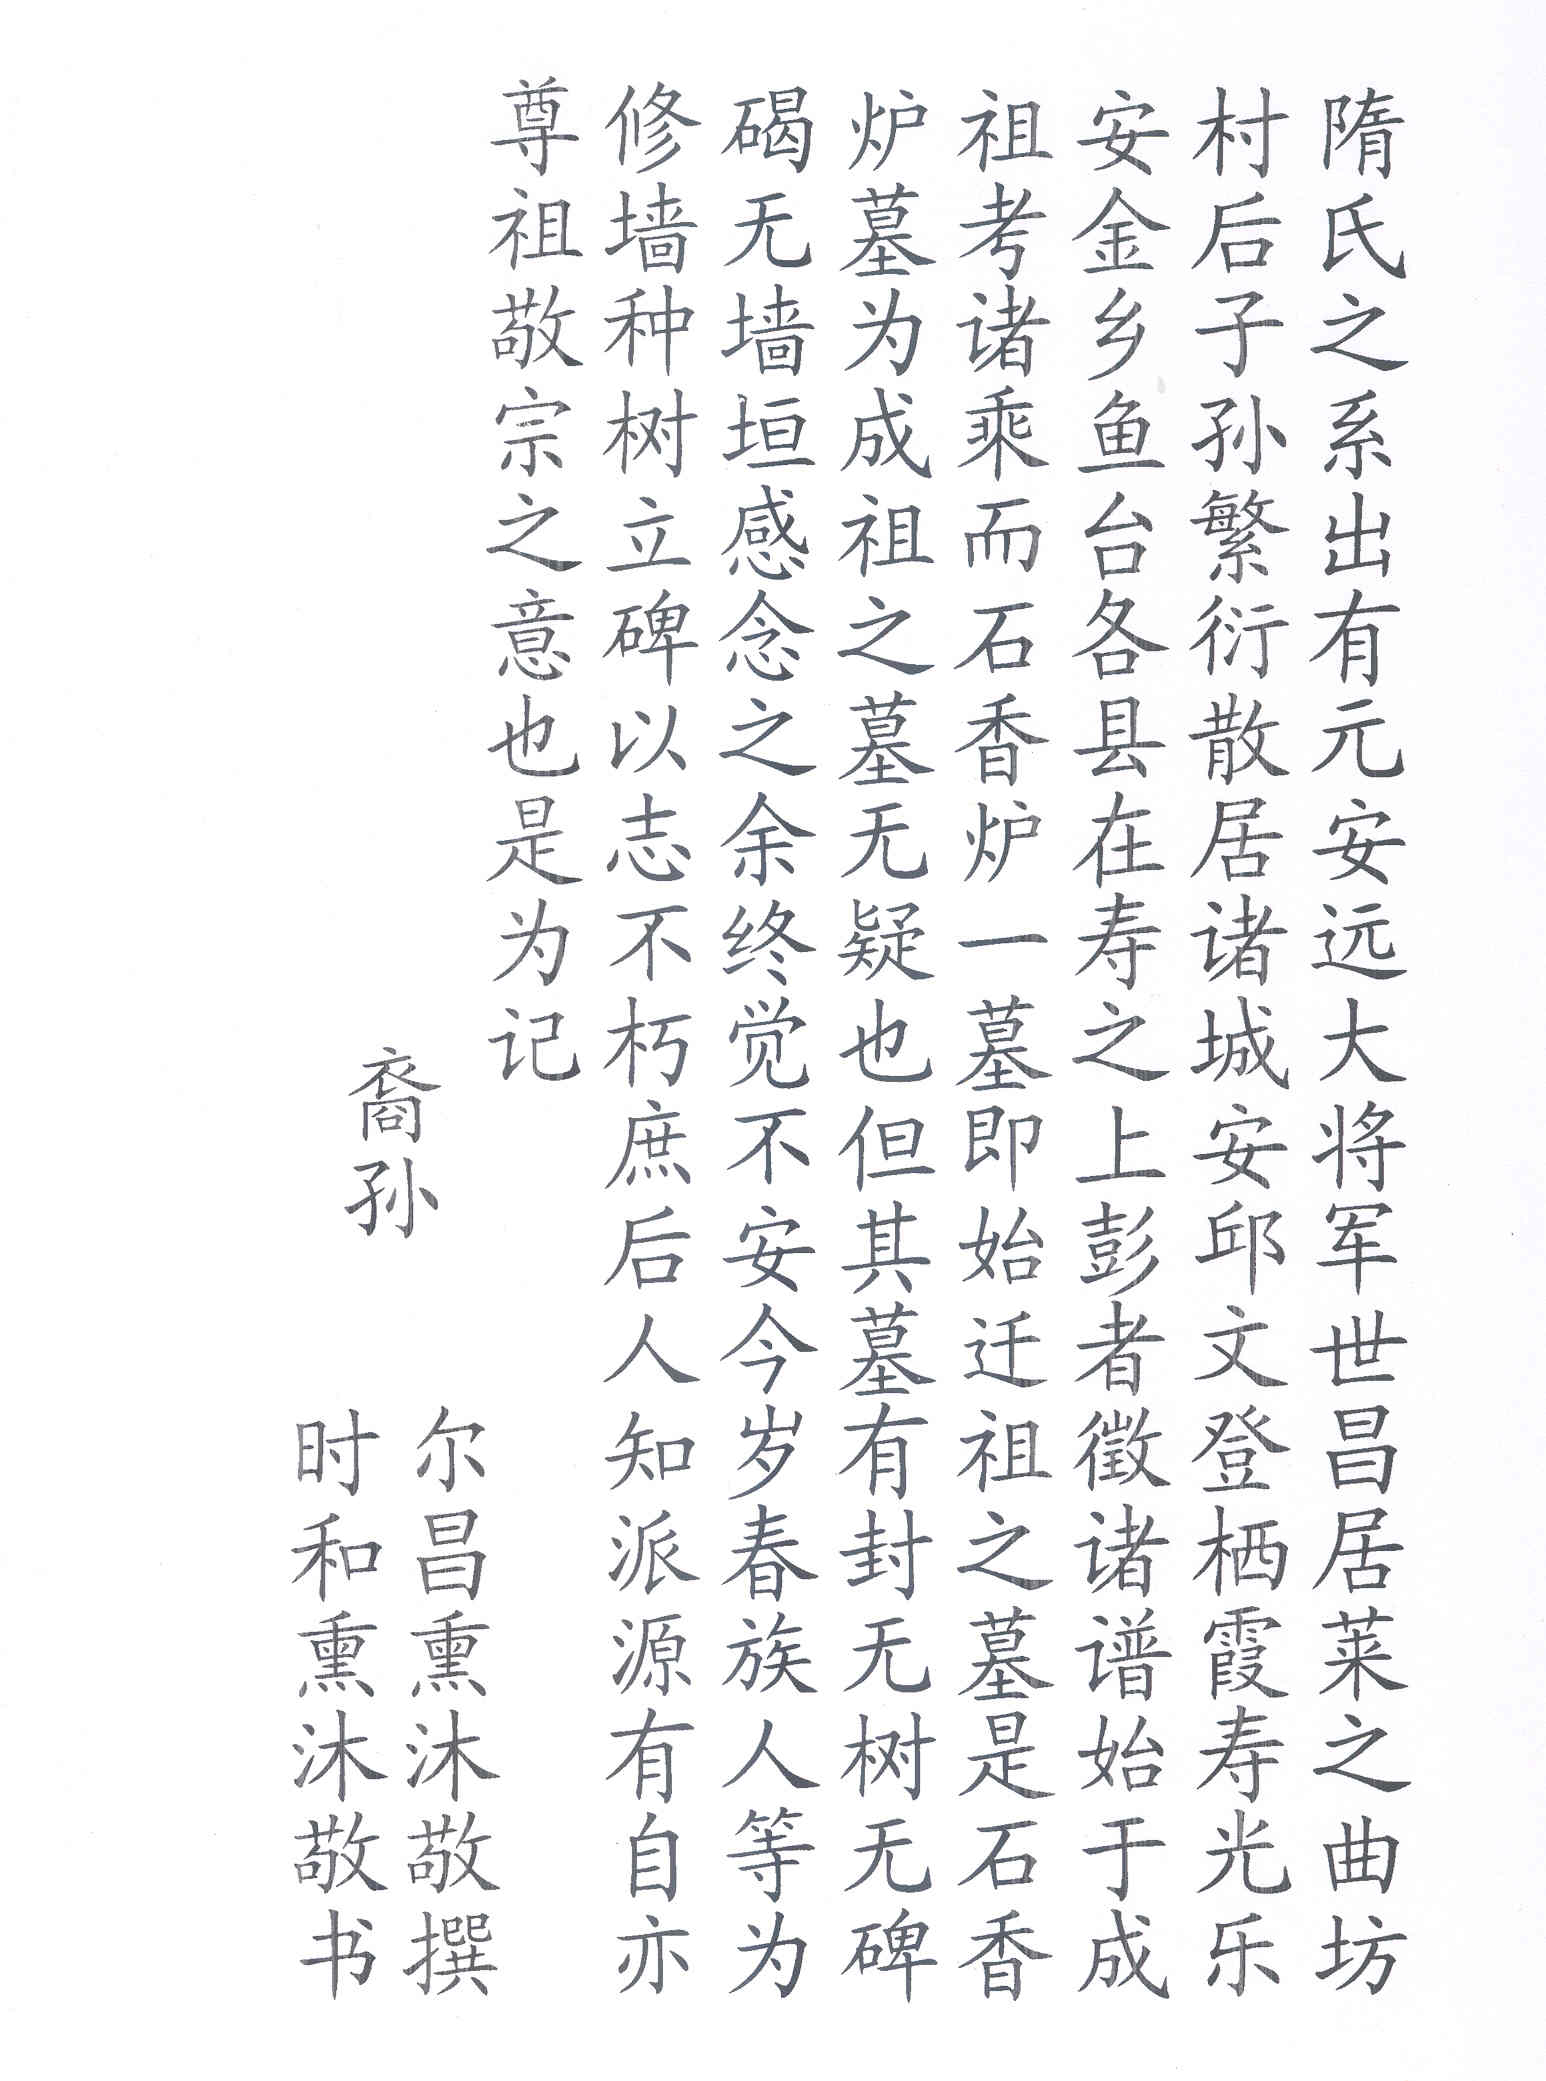 隋氏之系出有元安远大将军世昌居莱之曲坊
村后子孙繁衍散居诸城安邱文登栖霞寿光乐
安金乡鱼台各县在寿之上彭者徵诸谱始于成
祖考诸乘而石香炉一墓即始迁祖之墓是石香
炉墓为成祖之墓无疑也但其墓有封无树无碑
碣无墙垣感念之余终觉不安今岁春族人等为
修墙种树立碑以志不朽庶后人知派源有自亦
尊祖敬宗之意也是为记
裔孙
尔昌熏沐敬撰
时和熏沐敬书